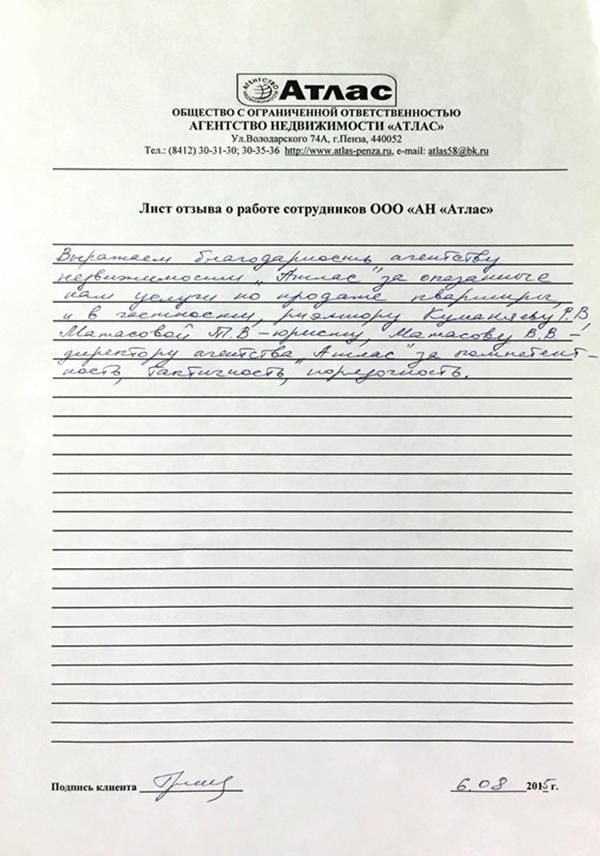 АГЕНТСТВО НЕДВИЖИМОСТИ
Атлас
ОБЩЕСТВО С ОГРАНИЧЕННОЙ ОТВЕТСТВЕННОСТЬЮ
АГЕНТСТВО НЕДВИЖИМОСТИ «АТЛАС»
Ул.Володарского 74А, г.Пенза, 440052
Тел.: (8412) 30-31-30; 30-35-36 http://www.atlas-penza.ru, e-mail: atlas58@bk.ru
Лист отзыва о работе сотрудников ООО «АН «Атлас»
Выражаем благодарность агентству
недвижимости „Атлас" за оказанные
нам услуги по продаже квартиры,
и в частности, риэлтору Куманяеву Р.В,
Матасовой Т.В – юристу, Матасову В.В. –
директору агентства „Атлас" за компетент-
ность, тактичность, порядочность.
Подпись клиента
6.08 2015 г.